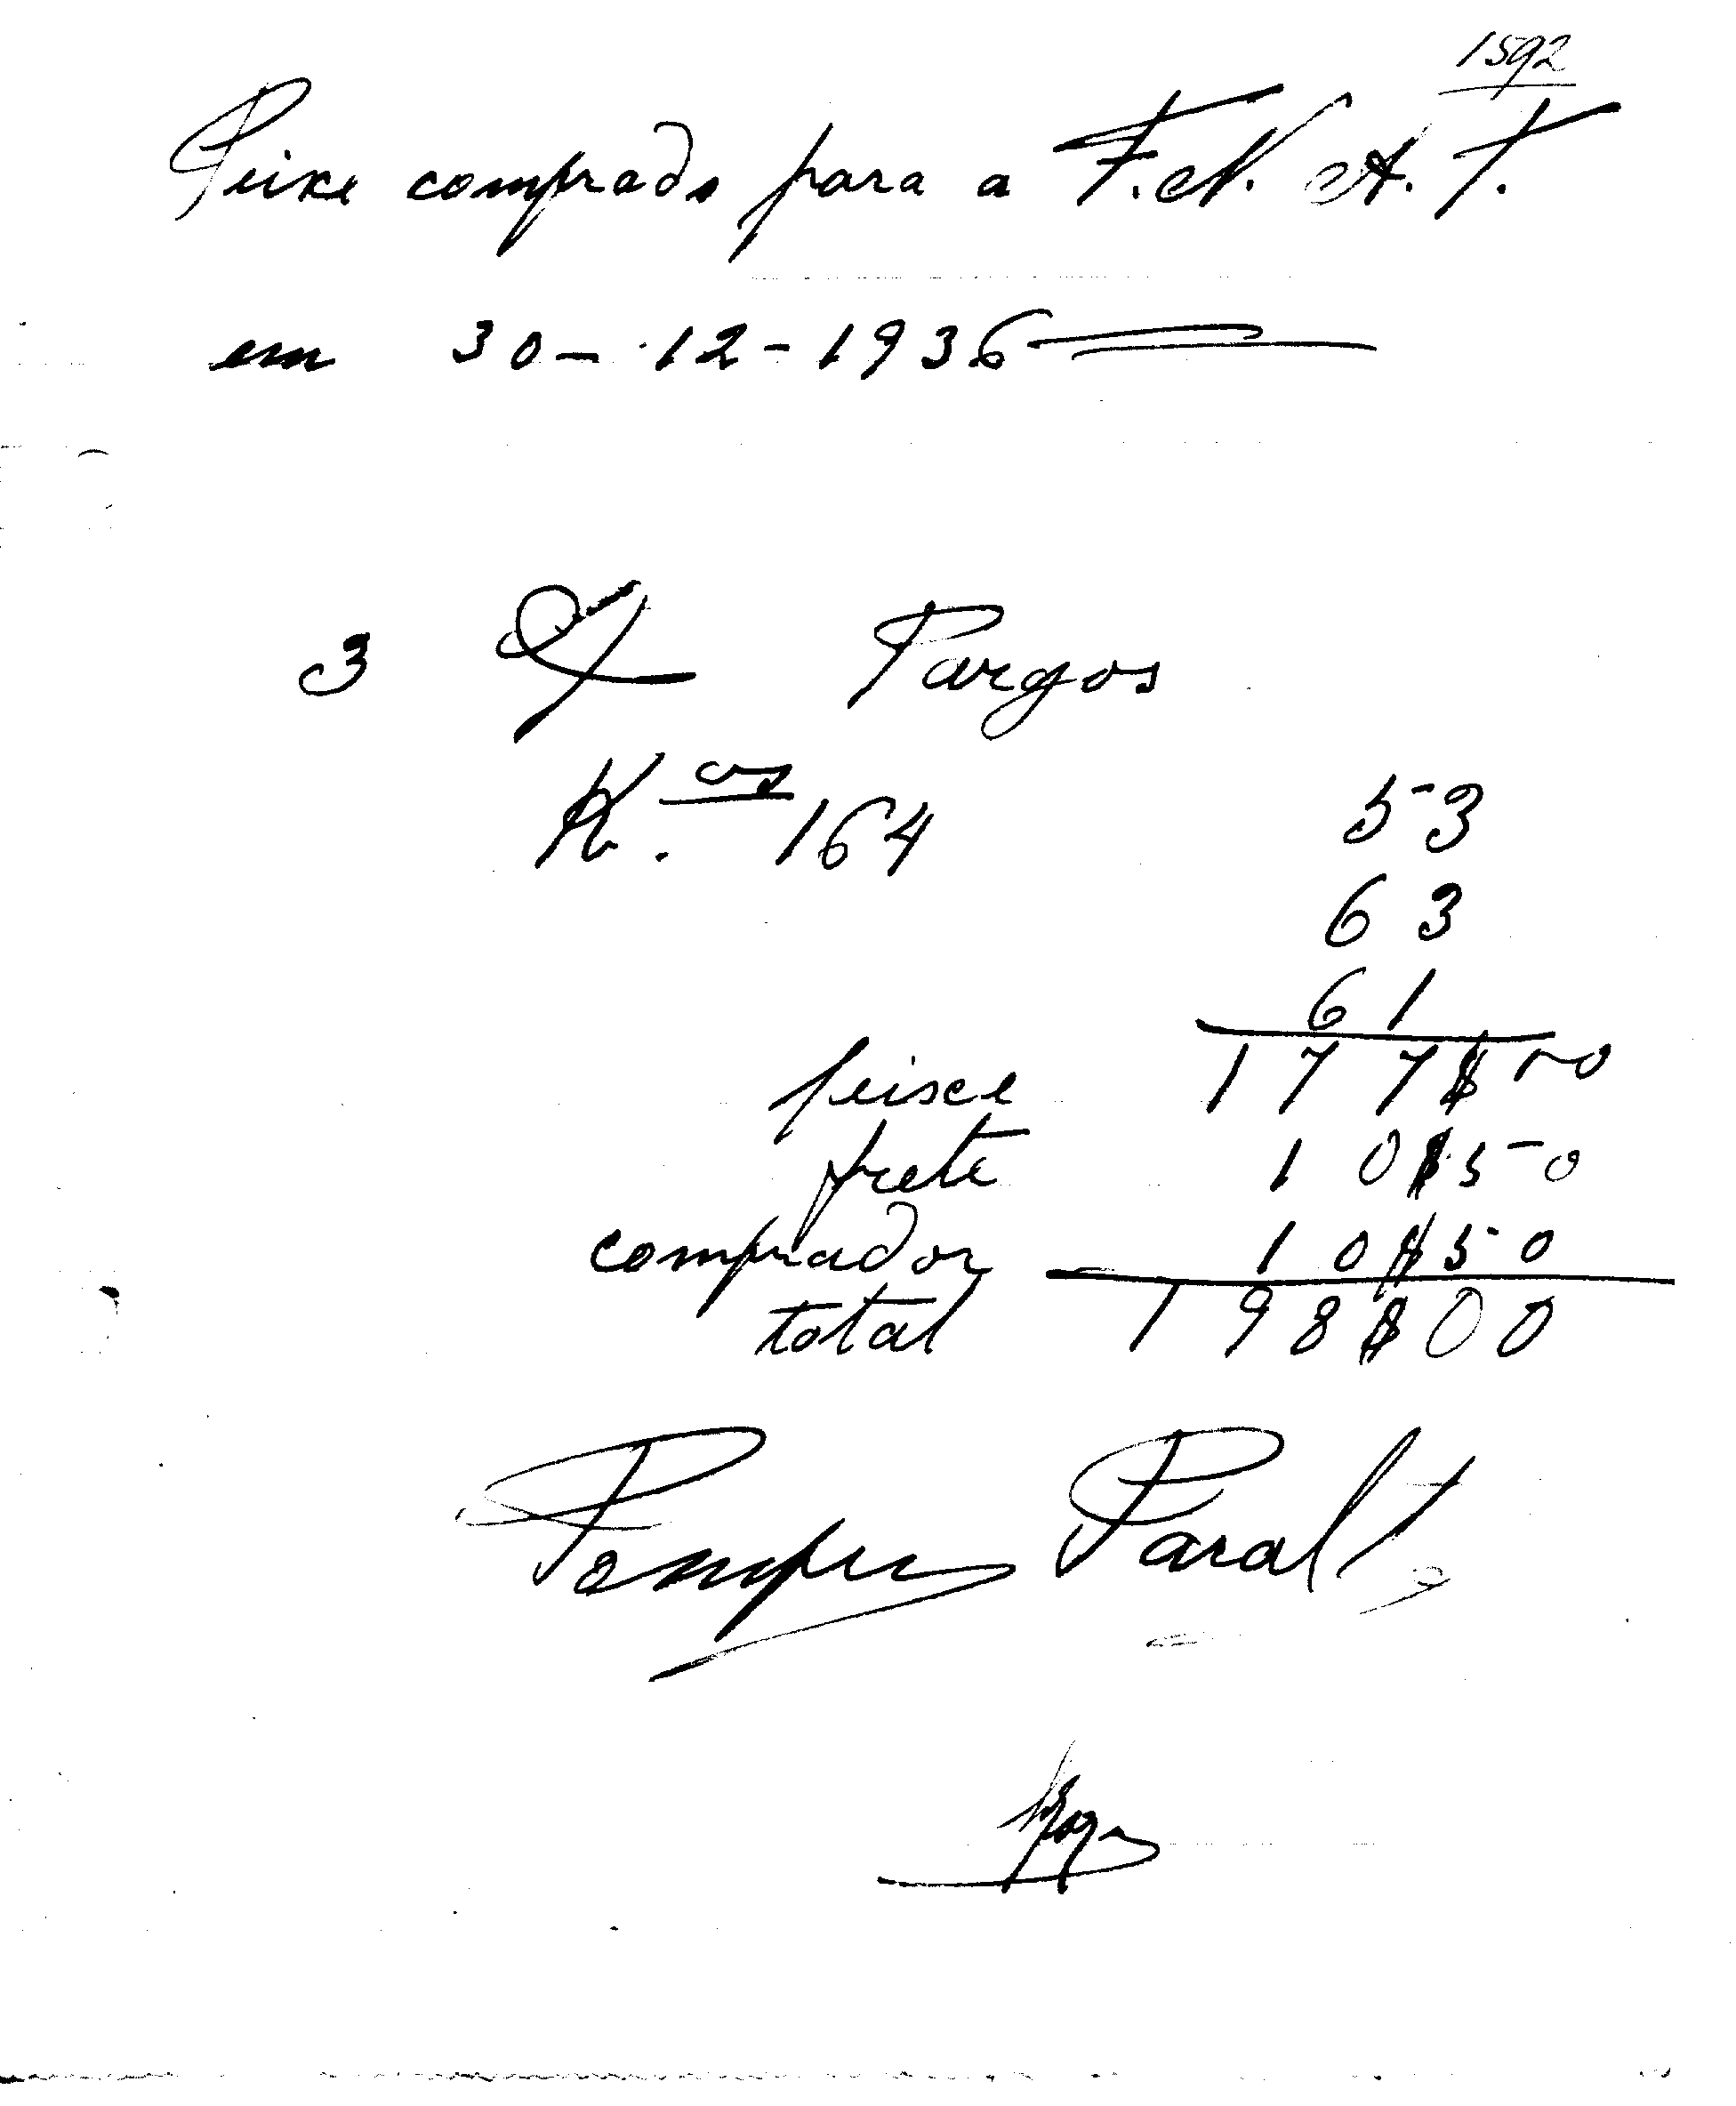 1592
Peixe comprado para a F.N.A.T.
em 30-12-1936
3 Pargos
K.os 164 53
63
61
peixe 177$00
frete 10$50
comprador 10$50
total 198$00
Pompeu Paralta